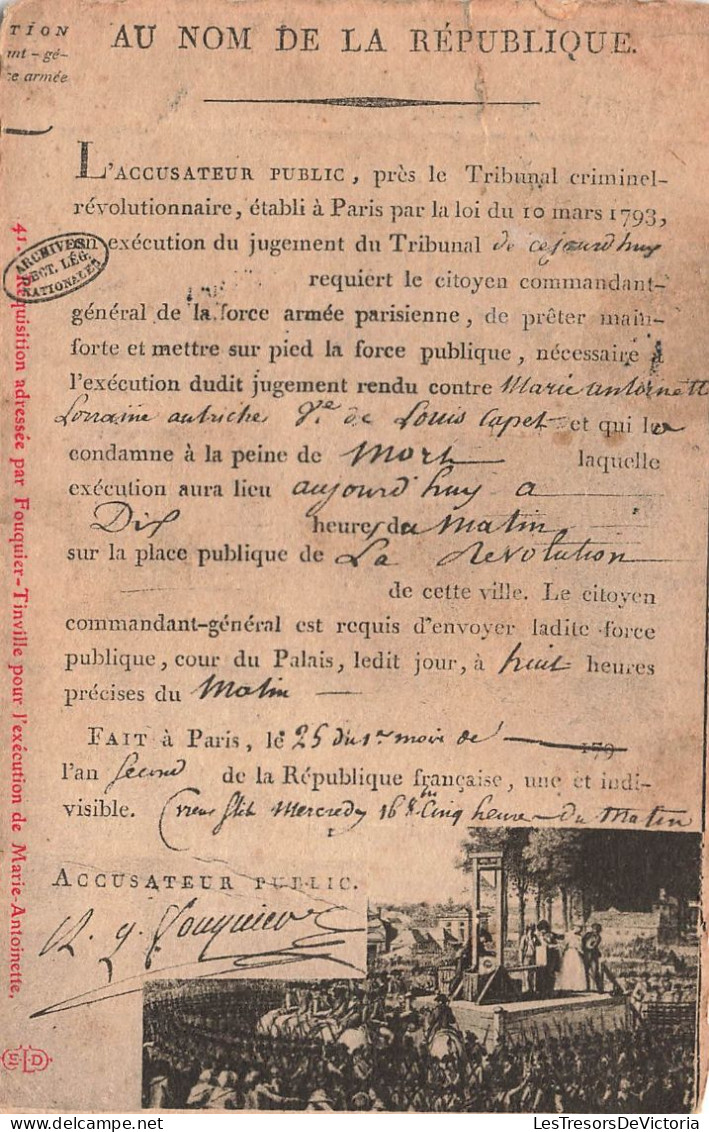 TION
nt-gé-
ce armée
AU NOM DE LA RÉPUBLIQUE.
L'ACCUSATEUR PUBLIC, près le Tribunal criminel-
révolutionnaire, établi à Paris par la loi du 10 mars 1793,
en exécution du jugement du Tribunal de cejourdhuy
requiert le citoyen commandant-
général de la force armée parisienne, de prêter main-
forte et mettre sur pied la force publique, nécessaire à
l'exécution dudit jugement rendu contre Marie antoinett
Lorraine autriche Ve de Louis Capet et qui la
condamne à la peine de Mort laquelle
exécution aura lieu aujourd'huy a
Dix heures du Matin
sur la place publique de La Revolution
de cette ville. Le citoyen
commandant-général est requis d'envoyer ladite force
publique, cour du Palais, ledit jour, à huit heures
précises du Matin
FAIT à Paris, le 25 du 1er mois de 179
l'an Second de la République française, une et indi-
visible. (vieux Stile Mercredy 16 8bre Cinq heures du Matin
ACCUSATEUR PUBLIC.
A. q. Fouquier
ARCHIVES
SECT. LÉG.
NATIONALES
41. Réquisition adressée par Fouquier-Tinville pour l'exécution de Marie-Antoinette,
ELD
LesTresorsDeVictoria
LesTresorsDeVictoria